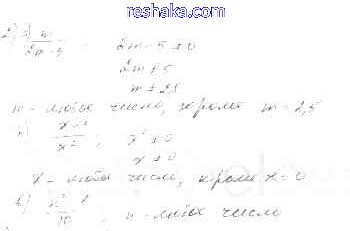 reshaka.com
2m - 5 ≠ 0
2m ≠ 5
m ≠ 2,5
m - любое число, кроме m = 2,5
x² ≠ 0
x ≠ 0
x - любое число, кроме x = 0
- любое число